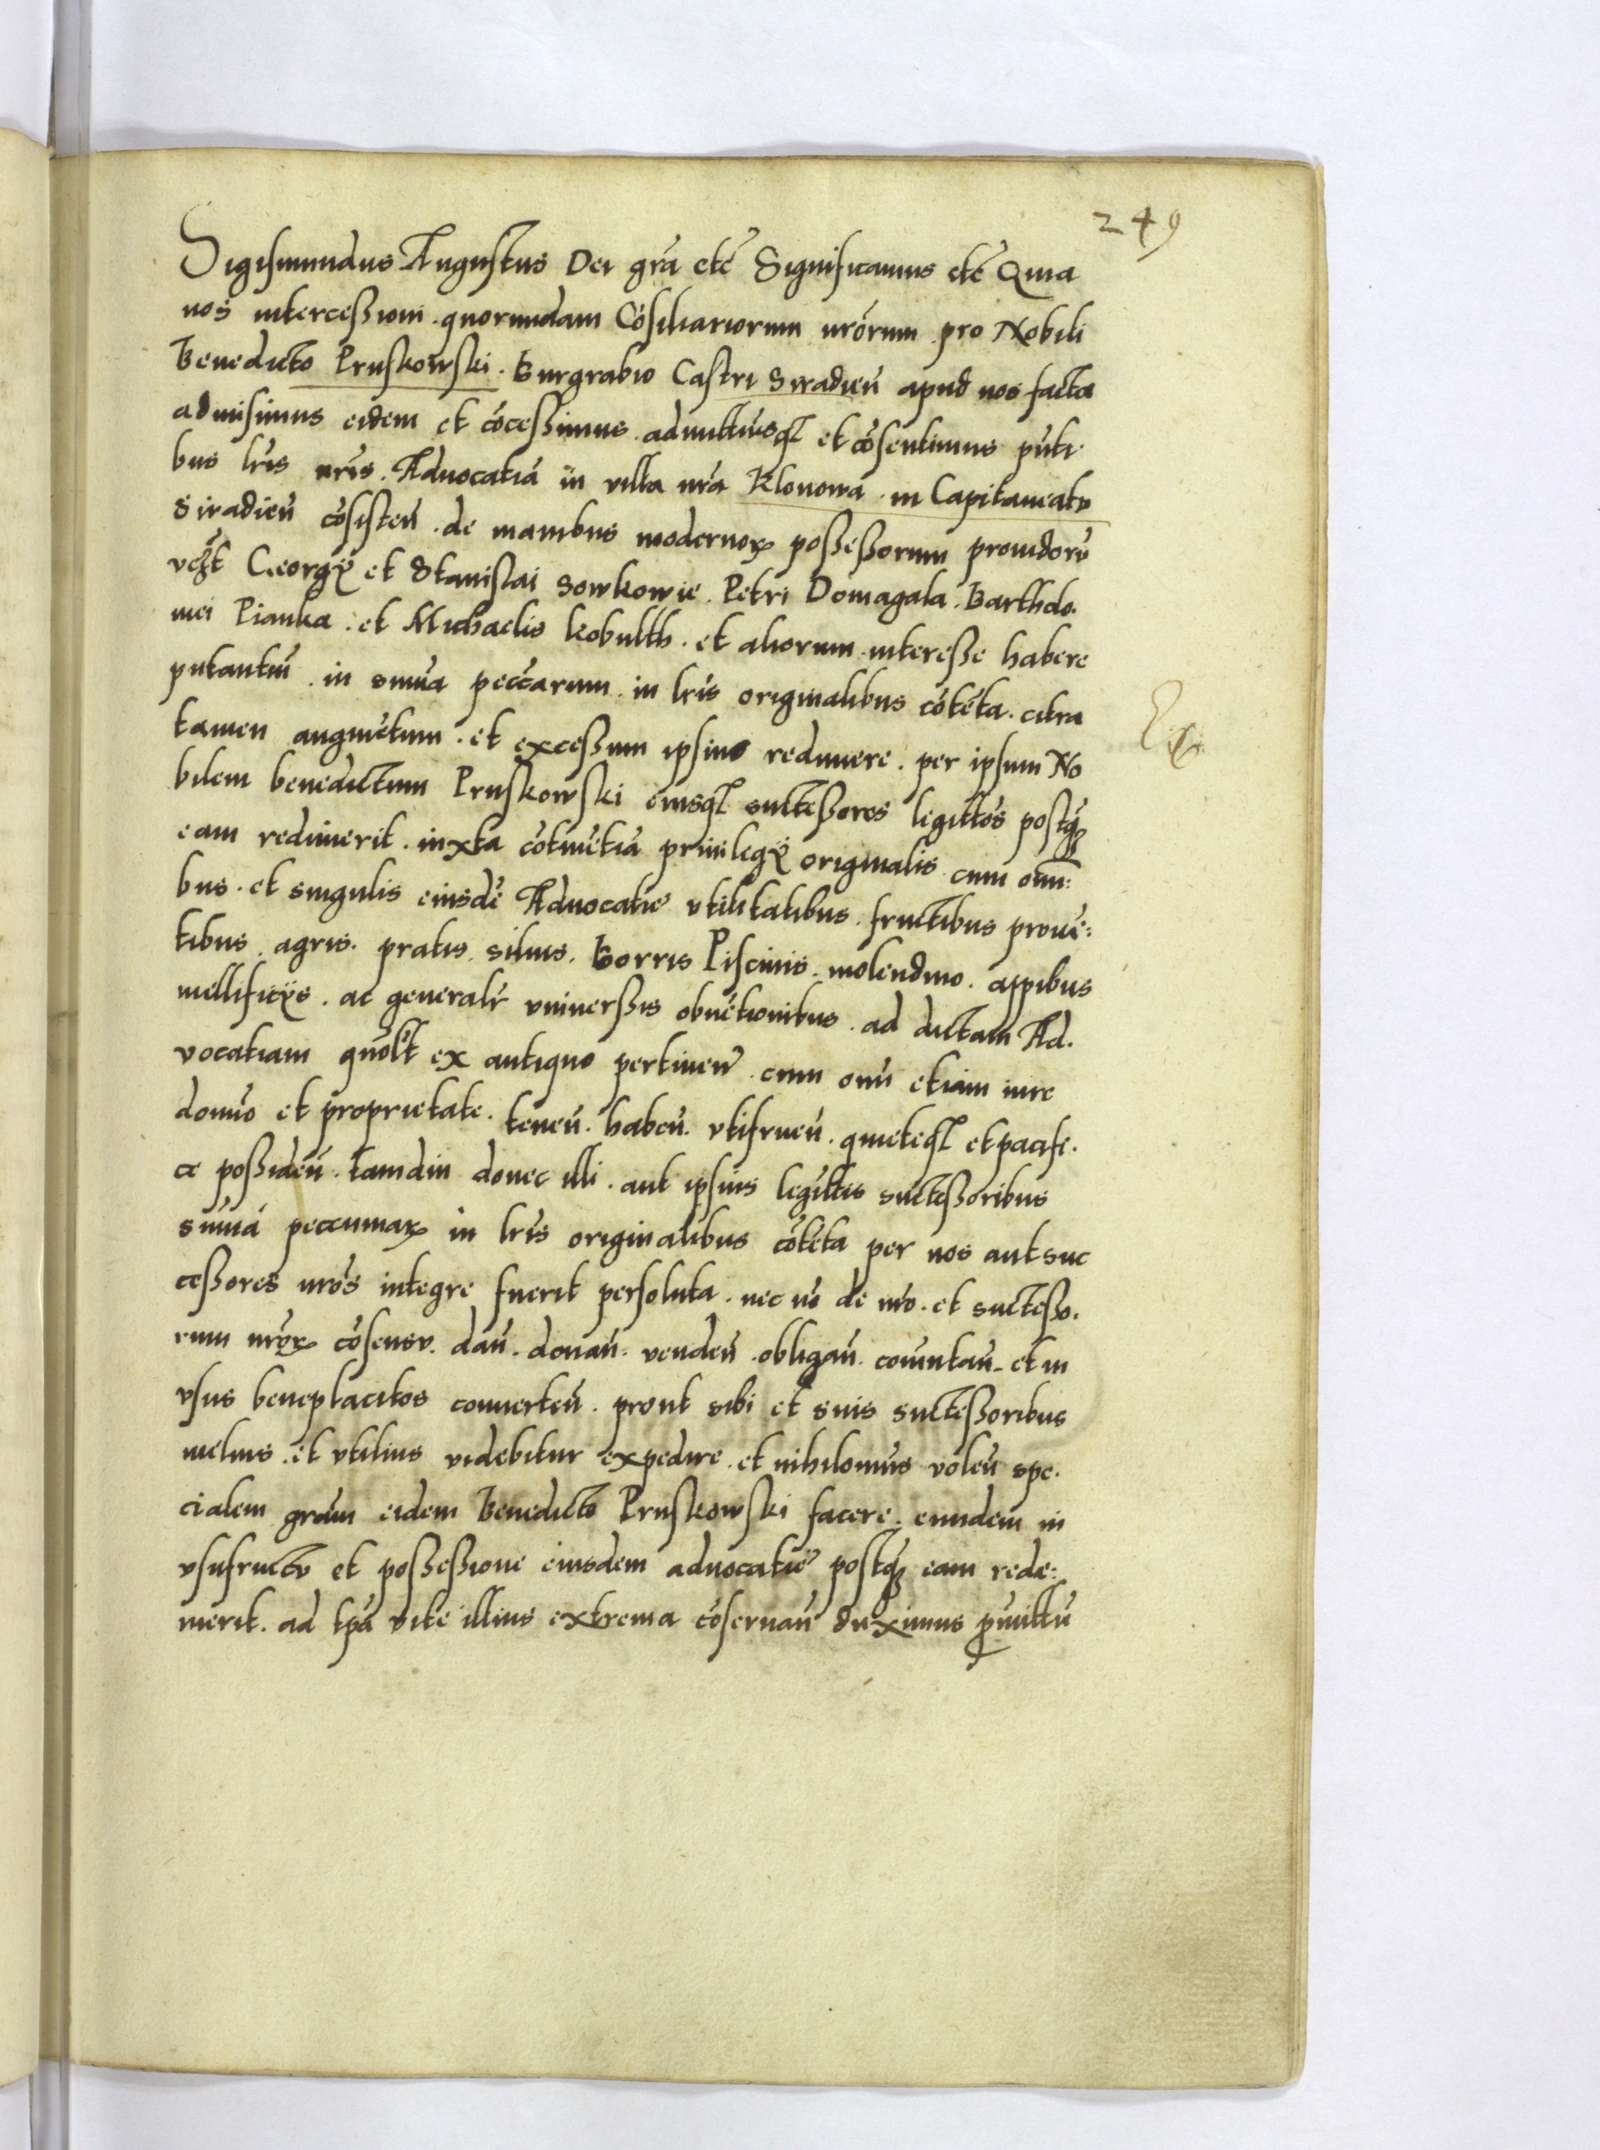 249
Sigismundus Augustus Dei grã etc̃ Significamus etc̃ Quia
nos intercessioni. quorundam Cõsiliariorum nrõrum pro Nobili
Benedicto Pruskowski. Burgrabio Castri Siradieñ apud nos facta
admisimus eidem et cõcessimus. admittimusq3 et cõsentimus pñti
bus lris nris. Advocatiã in villa nrã Klonowa in Capitaneatu
Siradieñ cõsisteñ. de manibus modernoꝝ possessorum providorũ
vczt Georgÿ et Stanislai Sowkowie. Petri Domagala. Bartholo.
mei Pianka. et Michaelis kobulth. et aliorum. interesse habere
putantiũ. in sum̃a peccarum. in lris originalibus cõtẽta. citra
tamen augmẽtum. et excessum ipsius redimere. per ipsum No
bilem benedictum Pruskowski eiusq3 successores legittõs postq̃
eam redimerit. iuxta cõtinẽtiã privilegÿ originalis cum omni:
bus. et singulis eiusdẽ Advocatie utilitatibus. fructibus provẽ:
tibus. agris. pratis. silvis. Borris Piscinis. molendino. appibus
mellificÿs. ac generalr̃ universis obvẽtionibus. ad dictam Ad.
vocatiam quõlt ex antiquo pertineñ. cum om̃i etiam iure
domĩo et proprietate. teneñ. habeñ. utifrueñ. quieteq3 et pacifi.
ce possideñ. tamdiu donec illi. aut ipsius legittis successoribus
sum̃ã peccuniaꝝ in lris originalibus cõtẽta per nos aut suc
cessores nrõs integre fuerit persoluta. nec nõ de nrõ. et successo.
rum nrõꝝ cõsensu. dañ. donañ. vendeñ. obligañ. com̃utañ. et in
usus beneplacitos converteñ. prout sibi et suis successoribus
melius. et utilius videbitur expedire. et nihilomĩus voleñ spe.
cialem grãm eidem Benedicto Pruskowski facere. eundem in
usufructu et possessione eiusdem advocatie postq̃ eam rede:
merit. ad tpã vite illius extrema cõservañ duximus